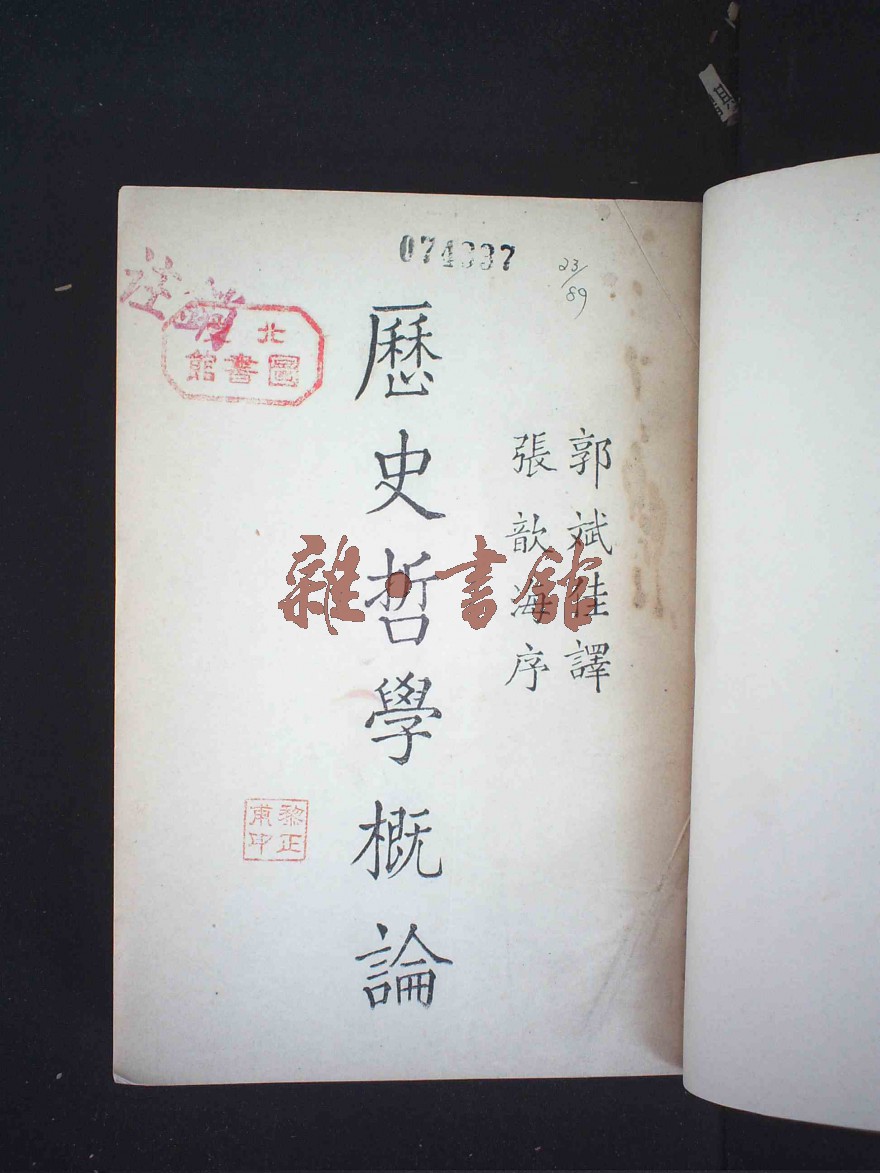 074337
23/89
郭斌佳譯
張歆海序
歷史哲學概論
注銷
北
圖書館
黎正甫印
雜·書館